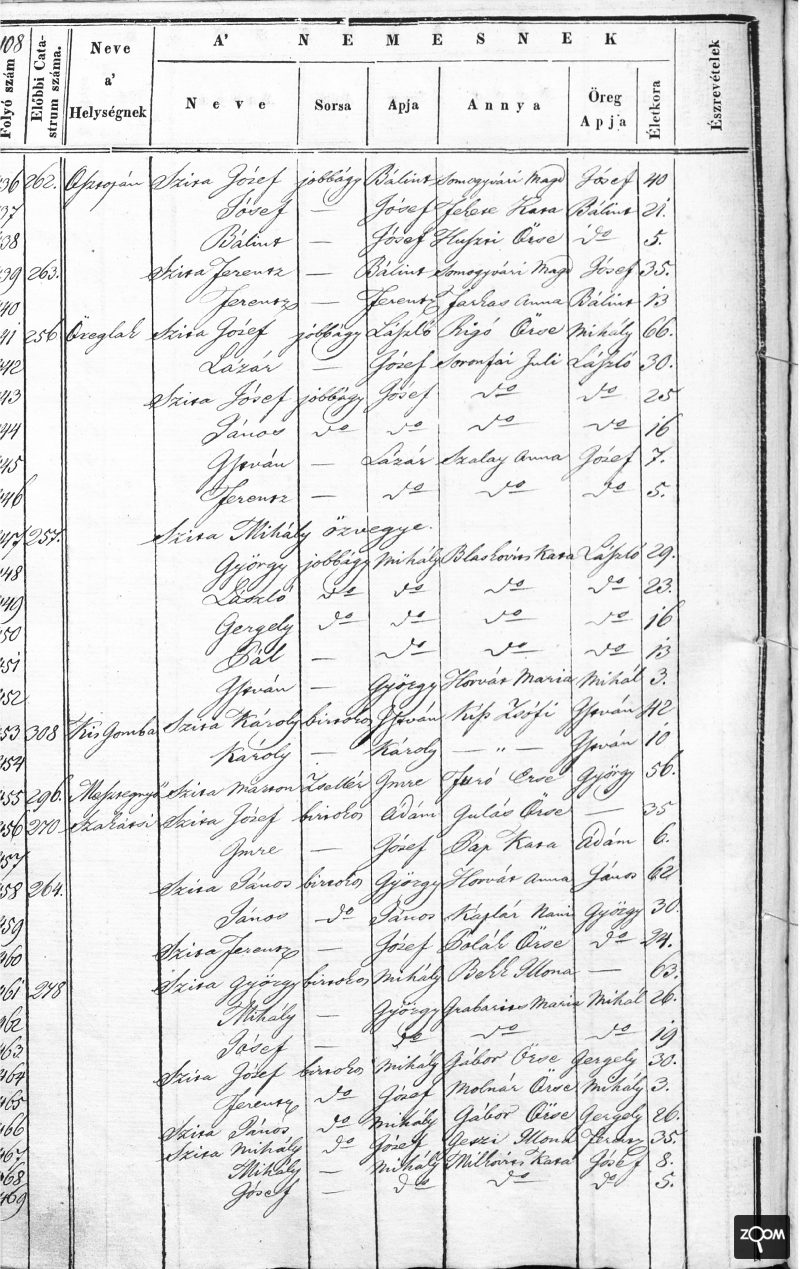 108
A' NEMESNEK
Folyó szám Előbbi Catastrum száma. Neve a' Helységnek Neve Sorsa Apja Annya Öreg Apja Életkora Észrevételek
36 262. Osztopán Szita Józef jobbágy Bálint Somogyvári Magd Jósef 40
37 Jósef — Jósef Ferete Kata Bálint 21.
38 Bálint — Jósef Huszti Örse do 5.
39 263. Szita Ferentz — Bálint Somogyvári Magd Jósef 35.
40 Ferentz — Ferentz Farkas Anna Bálint 13
41 256 Öreglak Szita Józef jobbágy László Rigó Örse Mihály 66.
42 Lázár — Józef Soronfai Juli László 30.
43 Szita Jósef jobbágy Jósef do do 25
44 János do do do do 16
45 István — Lázár Szalay Anna Józef 7.
46 Ferentz — do do do 5.
47 257. Szita Mihály özvegye.
48 György jobbágy Mihály Blaskovits Kata László 29.
49 László do do do do 23.
50 Gergely do do do do 16
51 Pál — do do do 13
52 István — György Horvát Maria Mihál 3.
53 308 Kis Gomba Szita Károly birtokos István Kiss Zsófi István 42
54 Károly — Károly — „ — István 10
55 296. Mesztegnyő Szita Marton Zsellér Imre Furó Erse György 56.
56 270 Szakátsi Szita Józef birtokos Adám Gulás Örse — 35
57 Imre — Józef Pap Kata Ádám 6.
58 264. Szita János birtokos György Horvát Anna János 62
59 János do János Káplár Nani György 30.
60 Szita Ferentz — Józef Polák Örse do 24.
61 278 Szita György birtokos Mihály Bekk Illona — 63.
62 Mihály — György Grabarits Maria Mihál 26.
63 Jósef — do do do 19
64 Szita Józef birtokos Mihály Gábor Örse Gergely 30.
65 Ferentz do Józef Molnár Örse Mihály 3.
66 Szita János do Mihály Gábor Örse Gergely 26.
67 Szita Mihály do Józef Geszi Illona Ferentz 35.
68 Mihály — Mihály Milkovits Kata Józef 8.
469 József — do do do 5.
ZOOM